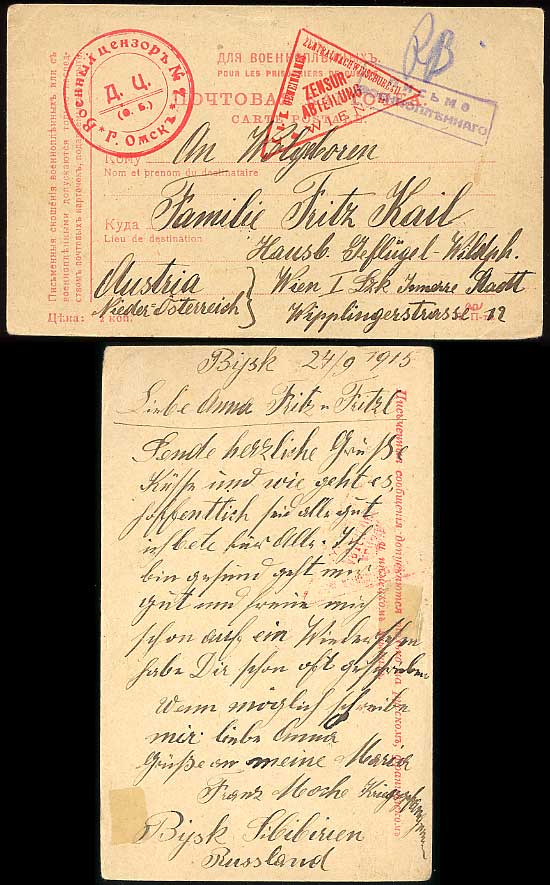 ДЛЯ ВОЕННОПЛѢННЫХЪ.
POUR LES PRISONNIERS DE
ПОЧТОВАЯ
CARTE POSTALE
Военный цензоръ № 2
Д. Ц.
г. Омскъ
ZENSUR
ABTEILUNG
WIEN
Письмо
ВОЕННОПЛѢННАГО
Кому
An
Nom et prénom du destinataire
Familie Fritz Kail
Куда
Lieu de destination
Hausb. Geflügel-Wildph.
Austria
Wien I Bzk Innere Stadt
Nieder-Österreich
Wipplingerstrasse 12
Цѣна: коп.
Письменныя сношенія военноплѣнныхъ или съ
военноплѣнными допускаются только
ствомъ почтовыхъ карточекъ,
Bijsk 24/9 1915
Liebe Anna Fritz u Fritzl
Sende herzliche Grüße
Küsse und wie geht es,
hoffentlich seid alle gut
ich bete für Alle. Ich
bin gesund geht mir
gut und freue mich
schon auf ein Wiedersehen
habe Dir schon oft geschrieben
Wenn möglich schreibe
mir liebe Anna
Grüße an meine Maria
Franz Moche
Bijsk Sibirien
Russland
Письменныя сообщенія допускаются только на русскомъ, французскомъ
и нѣмецкомъ